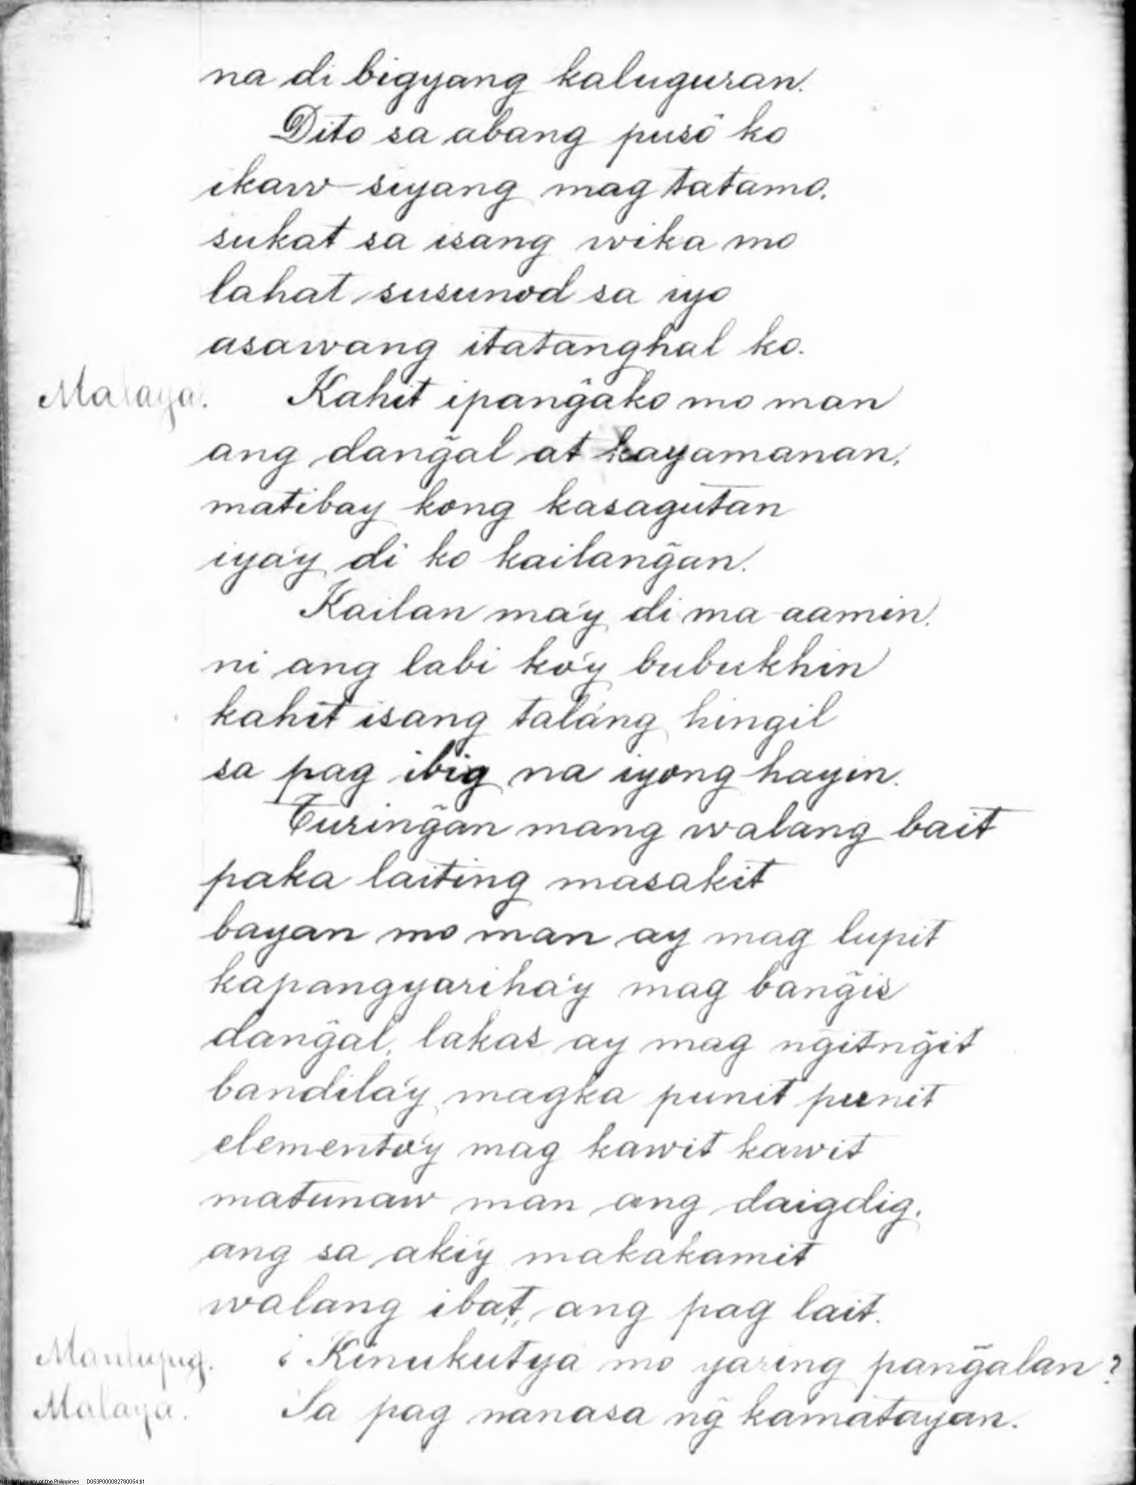 na di bigyang kaluguran.
Dito sa abang pusô ko
ikaw siyang mag tatamo.
sukat sa isang wika mo
lahat susunod sa iyo
asawang itatanghal ko.
Malaya. Kahit ipang̃ako mo man
ang dang̃al at kayamanan,
matibay kong kasagutan
iya'y di ko kailang̃an.
Kailan ma'y di ma-aamin.
ni ang labi ko'y bubukhin
kahit isang talang hingil
sa pag ibig na iyong hayin.
Turing̃an mang walang bait
paka laiting masakit
bayan mo man ay mag lupit
kapangyariha'y mag bang̃is
dang̃al, lakas ay mag ng̃itng̃it
bandila'y magka punit punit
elemento'y mag kawit kawit
matunaw man ang daigdig.
ang sa aki'y makakamit
walang ibat, ang pag lait.
Manlupig. ¿Kinukutya mo yaring pang̃alan?
Malaya. Sa pag nanasa ng̃ kamatayan.
of the Philippines D063P00008278005481